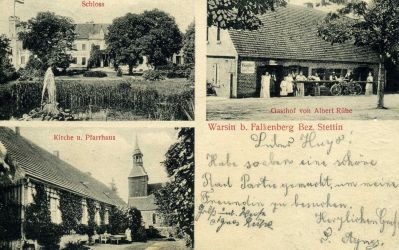 Schloss
Gasthof von Albert Rübe
Kirche u. Pfarrhaus
Warsin b. Falkenberg Bez. Stettin
Habe soeben eine schöne
Rad Partie gemacht, um meine
Freundin zu besuchen.
Herzlichen Gruß
Agnes